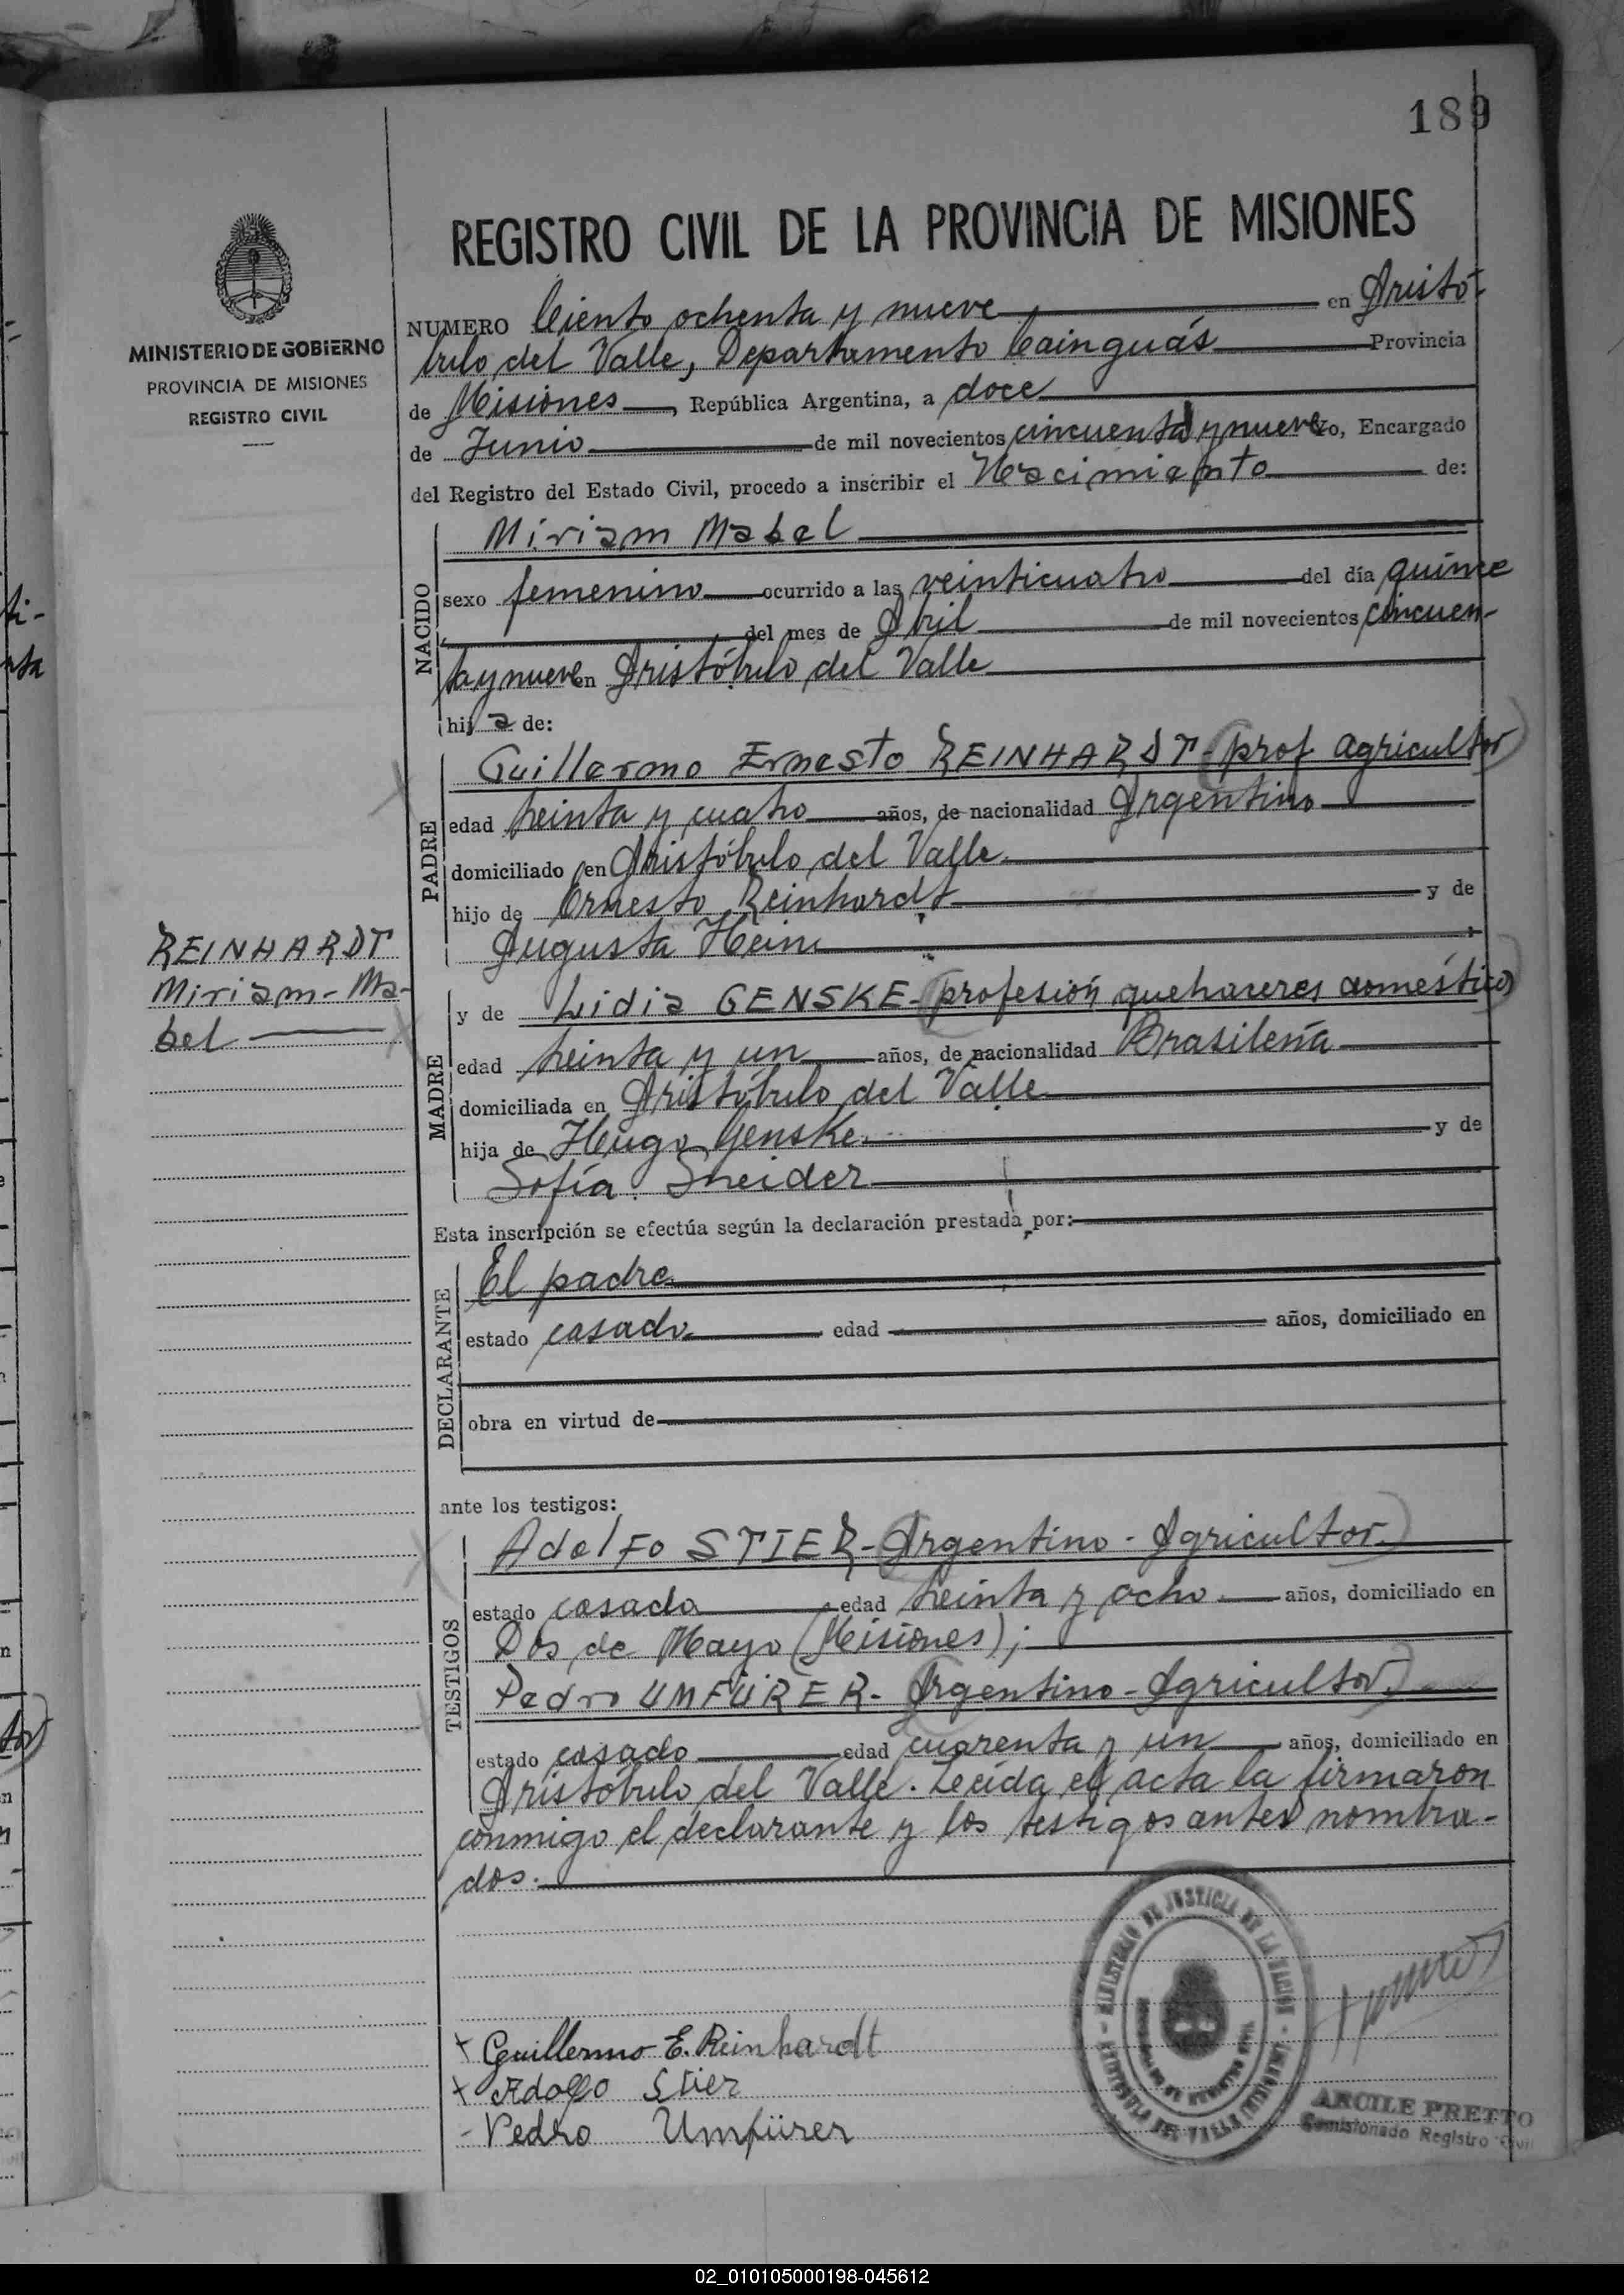 189
MINISTERIO DE GOBIERNO
PROVINCIA DE MISIONES
REGISTRO CIVIL
REGISTRO CIVIL DE LA PROVINCIA DE MISIONES
NUMERO Ciento ochenta y nueve en Aristó-
bulo del Valle, Departamento Cainguás Provincia
de Misiones, República Argentina, a doce
de Junio de mil novecientos cincuenta y nueve Yo, Encargado
del Registro del Estado Civil, procedo a inscribir el Nacimiento de:
NACIDO
Miriam Mabel
sexo femenino ocurrido a las veinticuatro del día quince
del mes de Abril de mil novecientos cincuen-
ta y nueve en Aristóbulo del Valle
hija de:
PADRE
Guillermo Ernesto REINHARDT - (prof agricultor)
edad treinta y cuatro años, de nacionalidad Argentino
domiciliado en Aristóbulo del Valle.
hijo de Ernesto Reinhardt y de
Augusta Hein
REINHARDT
Miriam - Ma-
bel
MADRE
y de Lidia GENSKE - (profesión quehaceres doméstico)
edad treinta y un años, de nacionalidad Brasileña
domiciliada en Aristóbulo del Valle
hija de Hugo Genske. y de
Sofía Sneider
Esta inscripción se efectúa según la declaración prestada por:
DECLARANTE
El padre
estado casado edad años, domiciliado en
obra en virtud de
ante los testigos:
TESTIGOS
Adolfo STIER - (Argentino - Agricultor.)
estado casado edad treinta y ocho años, domiciliado en
Dos de Mayo (Misiones);
Pedro UMFÜRER - (Argentino - Agricultor)
estado casado edad cuarenta y un años, domiciliado en
Aristóbulo del Valle. Leída el acta la firmaron
conmigo el declarante y los testigos antes nombra-
dos.
MINISTERIO DE JUSTICIA DE LA NACION
Guillermo E. Reinhardt
Adolfo Stier
Pedro Umfürer
ARCILE PRETTO
Comisionado Registro Civil
02_010105000198-045612